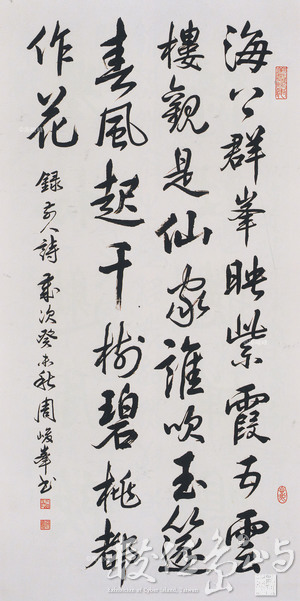 海上群峯映紫霞五雲
樓觀是仙家誰吹玉篴
春風起千樹碧桃都
作花
錄前人詩歲次癸未秋周峻峯書
數位島嶼